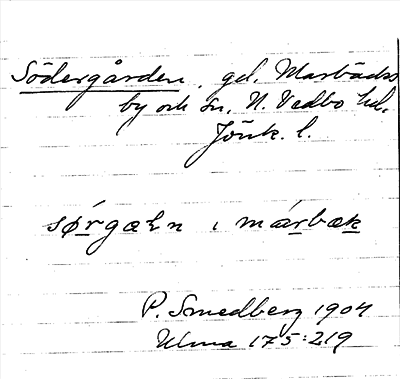 Södergården, gd, Marbäcks
by och sn, N. Vedbo hd.
Jönk. l.
sørgæln i márbæk
P. Smedberg 1904
Ulma 175:219